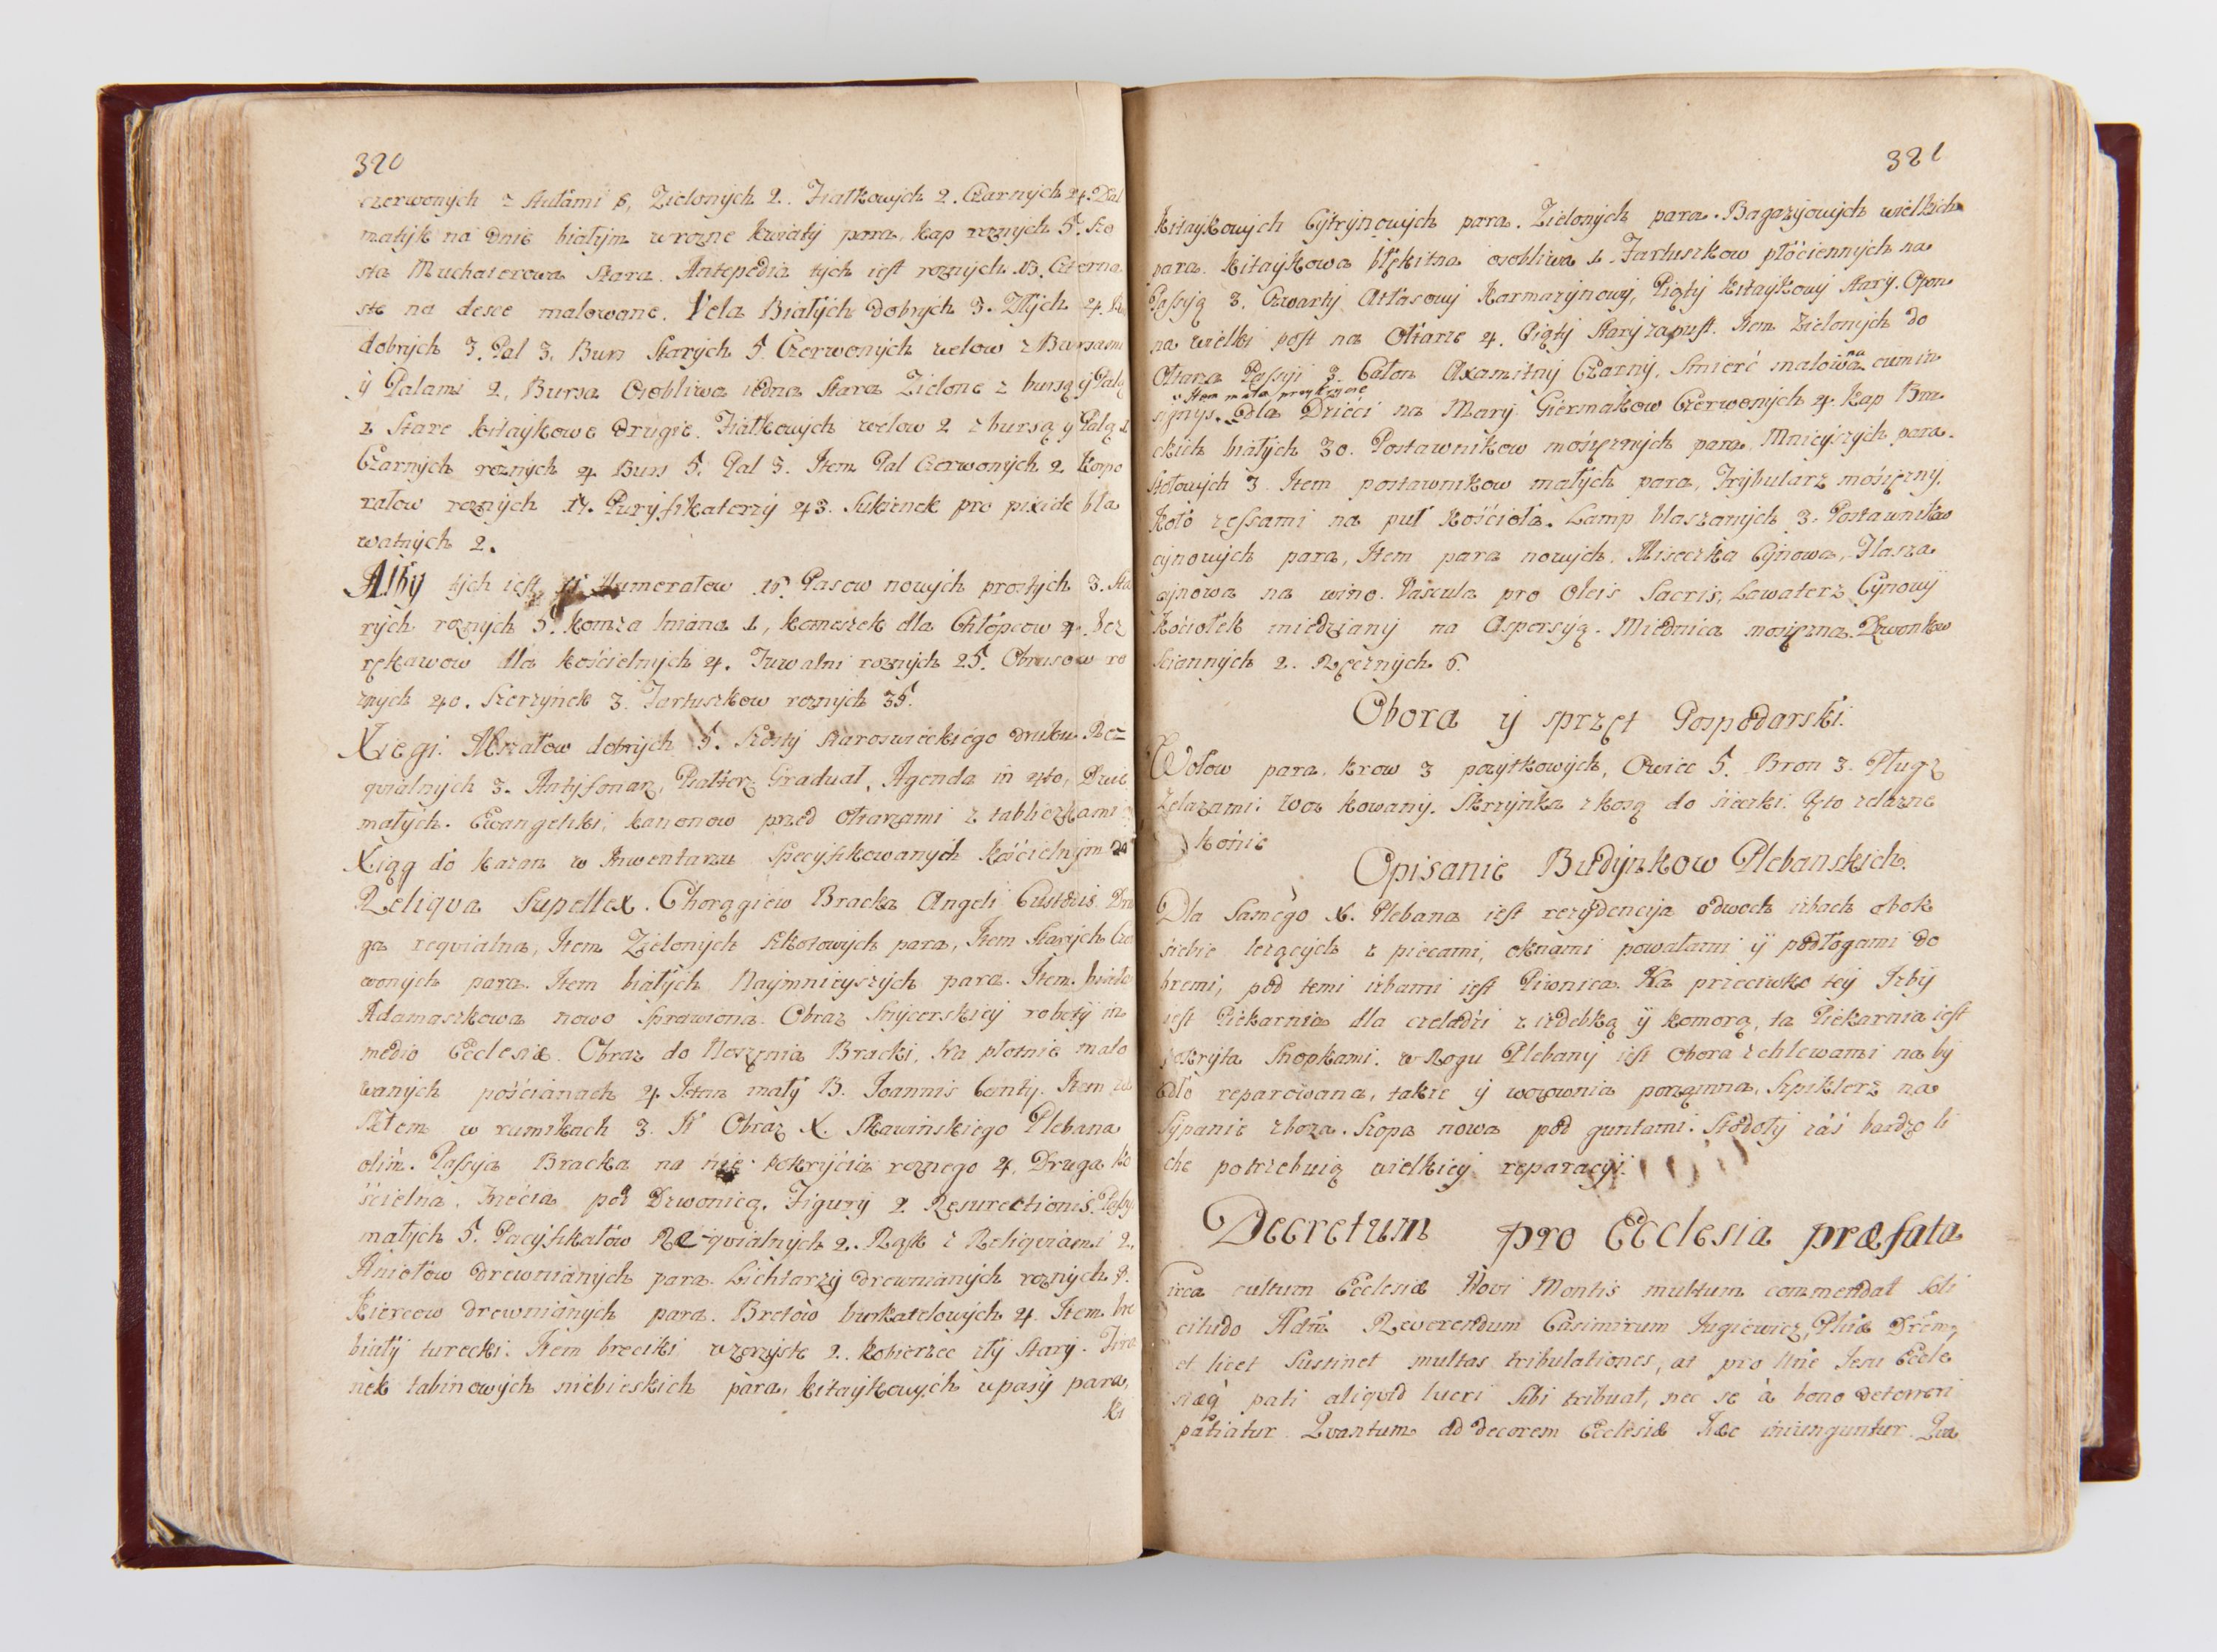 320
czerwonych z stułami 6, Zielonych 2. Fiałkowych 2. Czarnych 4. Dal
matyk na dnie białym w rozne kwiaty para, kap roznych 5. szo
sta Muchaierowa stara. Antepedia tych iest roznych 13. Czterna
ste na desce malowane. Vela Białych dobrych 3. Złych 4.
dobrych 3. Pal 3. Burs starych 5. Czerwonych welow z Bursami
ÿ Palami 2, Bursa Osobliwa iedna stara Zielone z bursą ÿ Palą
1 Stare kitaykowe drugie. Fiałkowych welow 2 z bursą ÿ Palą 1
Czarnych roznych 4 Burs 5. Pal 3. Item Pal Czerwonych 2. Korpo
rałow roznych 17. Puryfikaterzy 43. Sukienek pro pixide bła
watnych 2.
Alby tych iest Humerałow 16. Pasow nowych prostych 3. Sta
rych roznych 5. Komza lniana 1, komeszek dla Chłopcow 4. bez
rękawow dla kościelnych 4. Tuwalni roznych 25. Obrusow ro
znych 40. Szerzynek 3. Fartuszkow roznych 35.
Xiegi. Mszałow dobrych 5. szosty staroswieckiego druku. Re=
quialnych 3. Antyfonarz, Psałterz Gradual, Agenda in 4to, Dwie
małych. Ewangeliki, kanonow przed ołtarzami z tabliczkami
Xiąg do kazań w Inwentarzu specyfikowanych kościelnym
Reliqua Supellex. Chorągiew Bracka Angeli Custodis. Dru
ga requialna, Item Zielonych szkołowych para, Item starych Czer
wonych para. Item białych Naymnieyszych para. Item.
Adamaszkowa nowo sprawiona. Obraz Snycerskiey roboty in
medio Ecclesiæ. Obraz do Noszenia Bracki, na płotnie malo
wanych pościanach 4. Item mały B. Joannis Canty. Item
Szłem w ramkach 3. It Obraz X. Skawińskiego Plebana
olim. Passyja Bracka na nię pokrycia roznego 4. Druga ko
ścielna, Trzecia pod Dzwonicą. Figury 2 Resurectionis.
małych 5. Pacyfikałow Requialnych 2. Rąsk z Reliquiami 2.
Aniołow drewnianych para. Lichtarzy drewnianych roznych
Kiercow drewnianych para. Bretow burkatelowych 4. Item bre
biały turecki. Item breciki wzorzyste 2. kobierzec zły stary. Fira
nek tabinowych niebieskich para, kitaykowych upasy para,
Ki
321
kitaykowych Cytrynowych para. Zielonych para. Bagazyowych wielkich
para. kitaykowa błękitna osobliwa 1. Fartuszkow płóciennych na
Passyą 3. Czwarty Atłasowy karmazynowy, Piąty kitaykowy stary. Opon
na wielki post na Ołtarze 4. Piąty stary zapust. Item Zielonych do
Ołtarza Passyi 3. Całon Axamitny Czarny. Smierć malowana cum in
Item mała przykrycie
signys. Dla Dzieci na Mary Giermakow Czerwonych 4. kap Bra
ckich białych 30. Postawnikow mosiężnych para. Mnieyszych para.
Stołowych 3. Item postawnikow małych para, Trybularz mosiężny.
Koło zessami na puł kościoła. Lamp blaszanych 3. Postawnikow
cynowych para, Item para nowych. Miseczka Cynowa, Flasza
cynowa na wino. Vascula pro Oleis Sacris, Lawaterz Cynowy
Kociołek miedziany na Aspersyą. Miednica mosięzna. Dzwonkow
sciannych 2. Ręcznych 6.
Obora ÿ sprzęt Gospodarski.
Wołow para. krow 3 pozytkowych, Owiec 5. Bron 3. Pług z
zelazami. Woz kowany. Skrzynka z kosą do sieczki. Pęto zelazne
konie
Opisanie Budynkow Plebanskich.
Dla Samego X. Plebana iest rezydencyja odwoch izbach obok
siebie lezących z piecami, oknami powałami ÿ podłogami do
bremi, pod temi izbami iest Piwnica. Na przeciwko tey Izby
iest Piekarnia dla czeladzi z izdebką ÿ komorą, ta Piekarnia iest
pokryta snopkami. w Rogu Plebany iest Obora z chlewami na by
dło reparowana, takze ÿ wozownia porządna, Szpiklerz na
Sypanie zboza. Szopa nowa pod guntami. Stodoły zaś bardzo li
che potrzebuią wielkiey reparacyi.
Decretum pro Ecclesia præfata
Circa cultum Ecclesiæ Novi Montis multum commendat Soli
citudo Adm Reverendum Casimirum Jugiewicz, Phiæ Drem,
et licet Sustinet multas tribulationes, at pro Nne Jesu Eccle
siæq pati aliquid lucri sibi tribuat, nec se à bono deterreri
patiatur. Quantum ad decorem Ecclesiæ Hæc iniunguntur. Qua